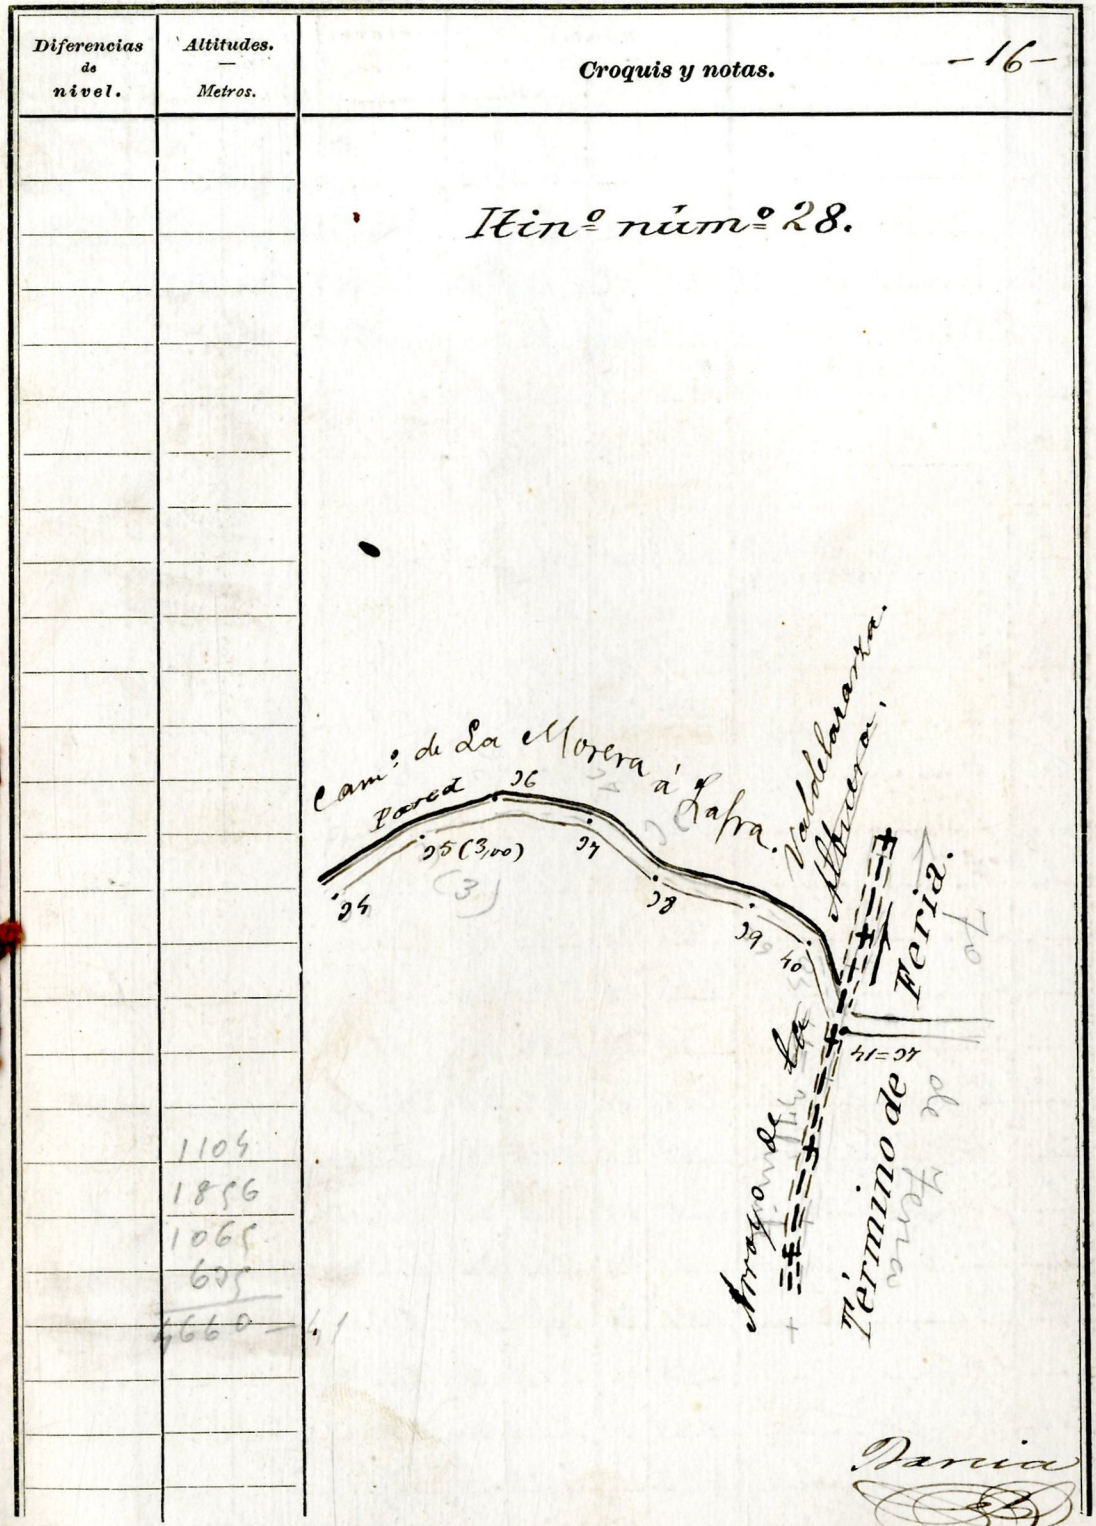 Diferencias
de
nivel.
Altitudes.
Metros.
Croquis y notas.
-16-
Itinº númº 28.
Camº de La Morera á Zafra.
Pared
34
35 (3,00)
(3)
36
37
38
39
40
41=37
Arroyo de la Albuera.
Valdelaranza.
Término de Feria.
de Feria
1104
1896
1065
635
4660 - 41